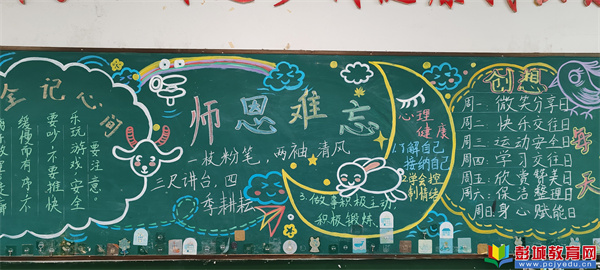 全记心间
要注意。
乐玩游戏安全
要吵，不要推快
缓慢而有序，六
师恩难忘
一枝粉笔，两袖清风
三尺讲台，四
季耕耘
心理
健康
1.了解自己
接纳自己
2.学会控
制情绪
3.做事积极主动
积极锻炼
创想
每天
周一：微笑分享日
周二：快乐交往日
周三：运动安全日
周四：学习交往日
周五：欣赏赞美日
周六：保洁整理日
周日：身心赋能日
彭城教育网
www.pcjyedu.cn